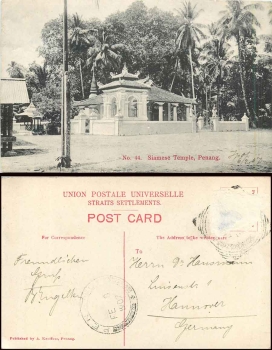 No. 44. Siamese Temple, Penang.
UNION POSTALE UNIVERSELLE
STRAITS SETTLEMENTS.
POST CARD
For Correspondence
The Address to be written here
To
Freundlichen
Gruß
Herrn Dr
Hannover
Germany
Published by A. Kaulfuss, Penang.